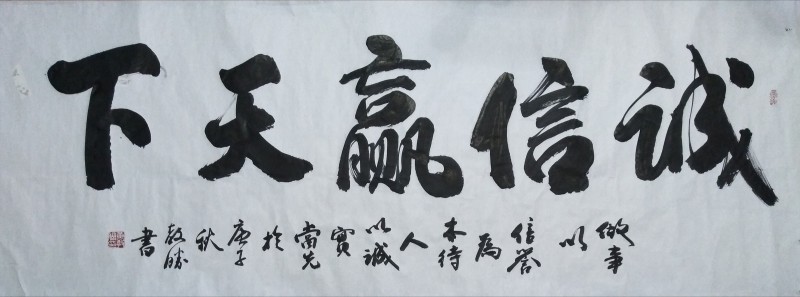 诚信赢天下
做事以信誉為本待人以诚實當先於庚子秋書